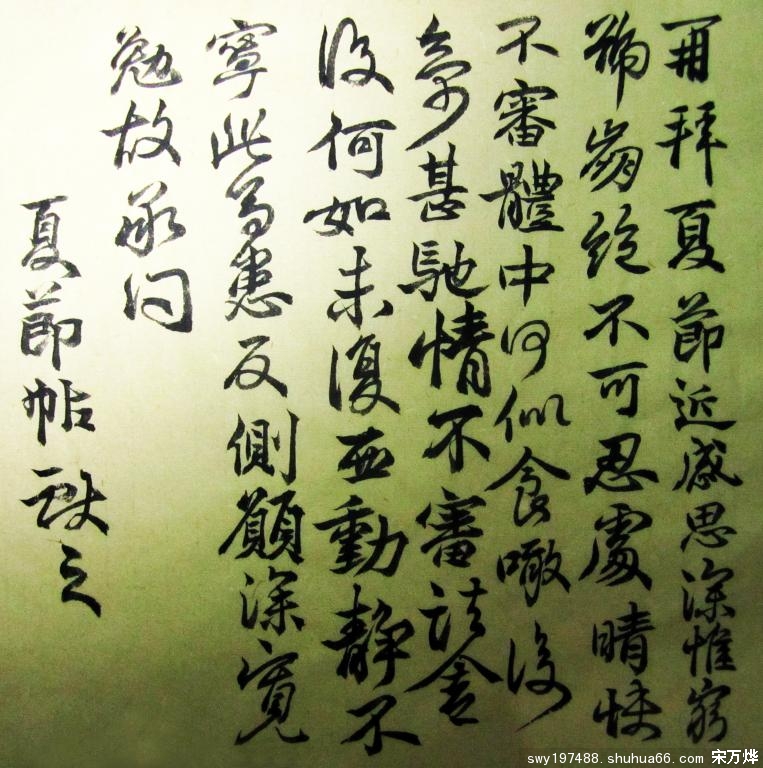 再拜夏節近感思深惟窮
號崩絕不可忍處晴快
不審體中何似食噉復
甚馳情不審諸舍
復何如未復動靜不
寧此為患反側願深寬
勉故承问
夏節帖 献之
swy197488.shuhua66.com 宋万烨